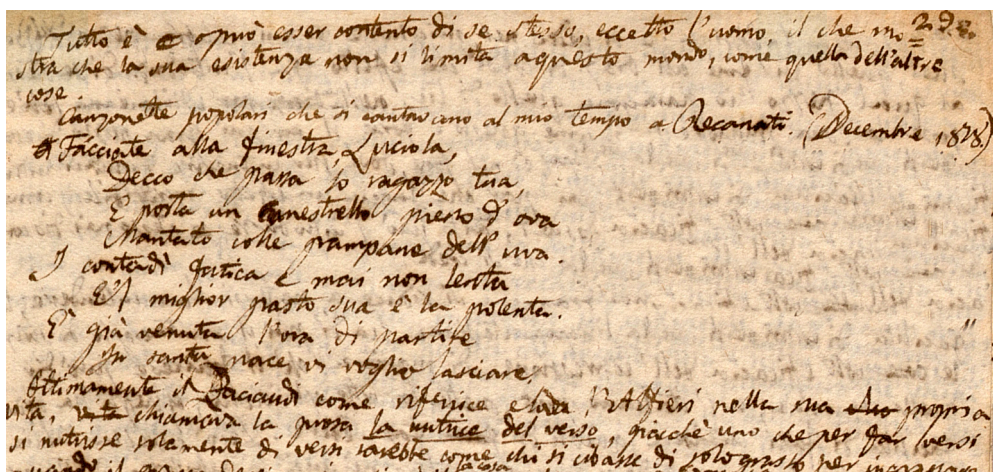 29
Tutto è o può esser contento di se stesso, eccetto l'uomo, il che mo=
stra che la sua esistenza non si limita a questo mondo, come quella dell'altre
cose.
Canzonette popolari che si cantavano al mio tempo a Recanati. (Decembre 1818.)
Fàcciate alla finestra, Luciola,
Decco che passa lo ragazzo tua,
E porta un canestrello pieno d'ova
Mantato colle pampane dell'uva.
I contadì fatica e mai non lenta
E 'l miglior pasto sua è la polenta.
È già venuta l'ora di partire
In santa pace vi voglio lasciare.
Ottimamente il Paciaudi come riferisce e loda l'Alfieri nella sua propria
vita, chiamava la prosa la nutrice del verso, giacchè uno che per far versi
si nutrisse solamente di versi sarebbe come chi si cibasse di solo grasso per ingrassare